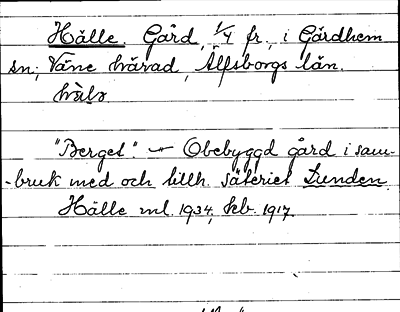 Hälle Gård, 1/4 fr., i Gärdhem
sn; Väne härad, Älfsborgs län.
"Berget". Obebyggd gård i sam-
-bruk med och tillh. säteriet Lunden.
Hälle ml. 1934, seb. 1917.